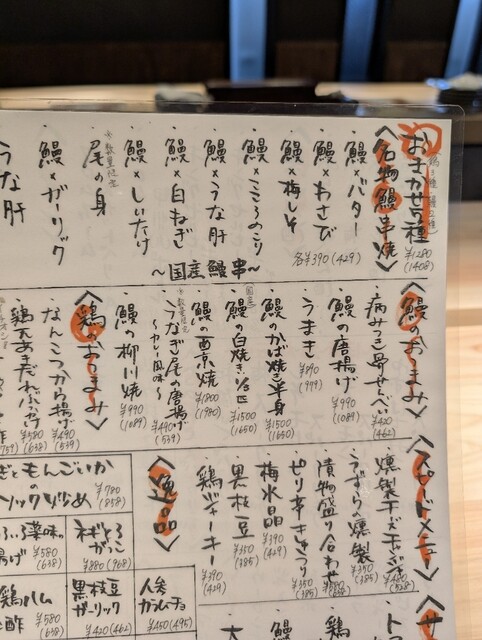 おまかせ5種
鶏3種 鰻2種
¥1280
(1408)
〈名物鰻串焼〉
・鰻×バター
・鰻×わさび
・鰻×梅しそ
・鰻×こころのこり
・鰻×うな肝
・鰻×白ねぎ
・鰻×しいたけ
・尾の身
※数量限定
・鰻×ガーリック
うな肝
〜国産鰻串〜
各¥390(429)
〈鰻のおつまみ〉
・病みつき骨せんべい
¥420
(462)
・鰻の唐揚げ
¥990
(1089)
・うまき
¥890
(979)
・鰻のかば焼き半身
¥1500
(1650)
国産
・鰻の白焼き1/2匹
¥1500
(1650)
・鰻の西京焼
¥1800
(1980)
※数量限定
・うなぎ尾の唐揚げ
〜カレー風味〜
¥490
(539)
・鰻の柳川焼
¥990
(1089)
〈鶏のおつまみ〉
・なんこつから揚げ
¥490
(539)
・鶏天あまだれぶっかけ
¥580
(638)
〈スピードメニュー〉
・燻製チーズチャンジャ
¥480
(528)
・うずらの燻製
¥350
(385)
・漬物盛り合わせ
¥580
(638)
・ピリ辛きゅうり
¥350
(385)
・梅水晶
¥390
(429)
・黒枝豆
¥350
(385)
・鶏ジャーキー
¥390
(429)
〈逸品〉
ぎともんごいかの
ーリック炒め
¥780
(858)
ねぎとろ
がっこ
¥880(968)
薬味の
揚げ
¥580
(638)
鶏ハム
酢
¥580
(638)
黒枝豆
ガーリック
¥420(462)
人参
カラムーチョ
¥450(495)
〈サ
・ト
・鶏
・鰻
・大